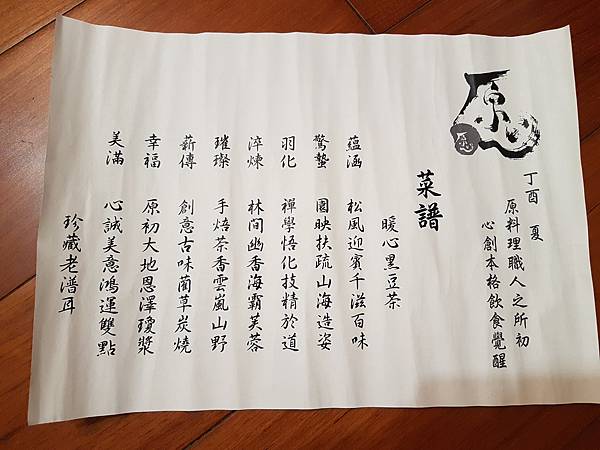 原
心
丁酉 夏
原料理職人之所初
心創本格飲食覺醒
菜譜
暖心黑豆茶
蘊涵 松風迎賓千滋百味
驚蟄 園映扶疏山海造姿
羽化 禪學悟化技精於道
淬煉 林間幽香海霸芙蓉
璀璨 手焙茶香雲嵐山野
薪傳 創意古味藺草炭燒
幸福 原初大地恩澤瓊漿
美滿 心誠美意鴻運雙點
珍藏老潽耳